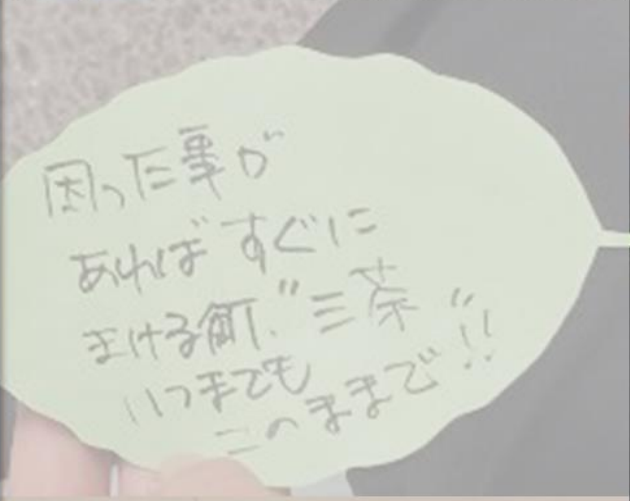 困った事が
あればすぐに
まける町、"三茶"
いつまでも
このままで!!